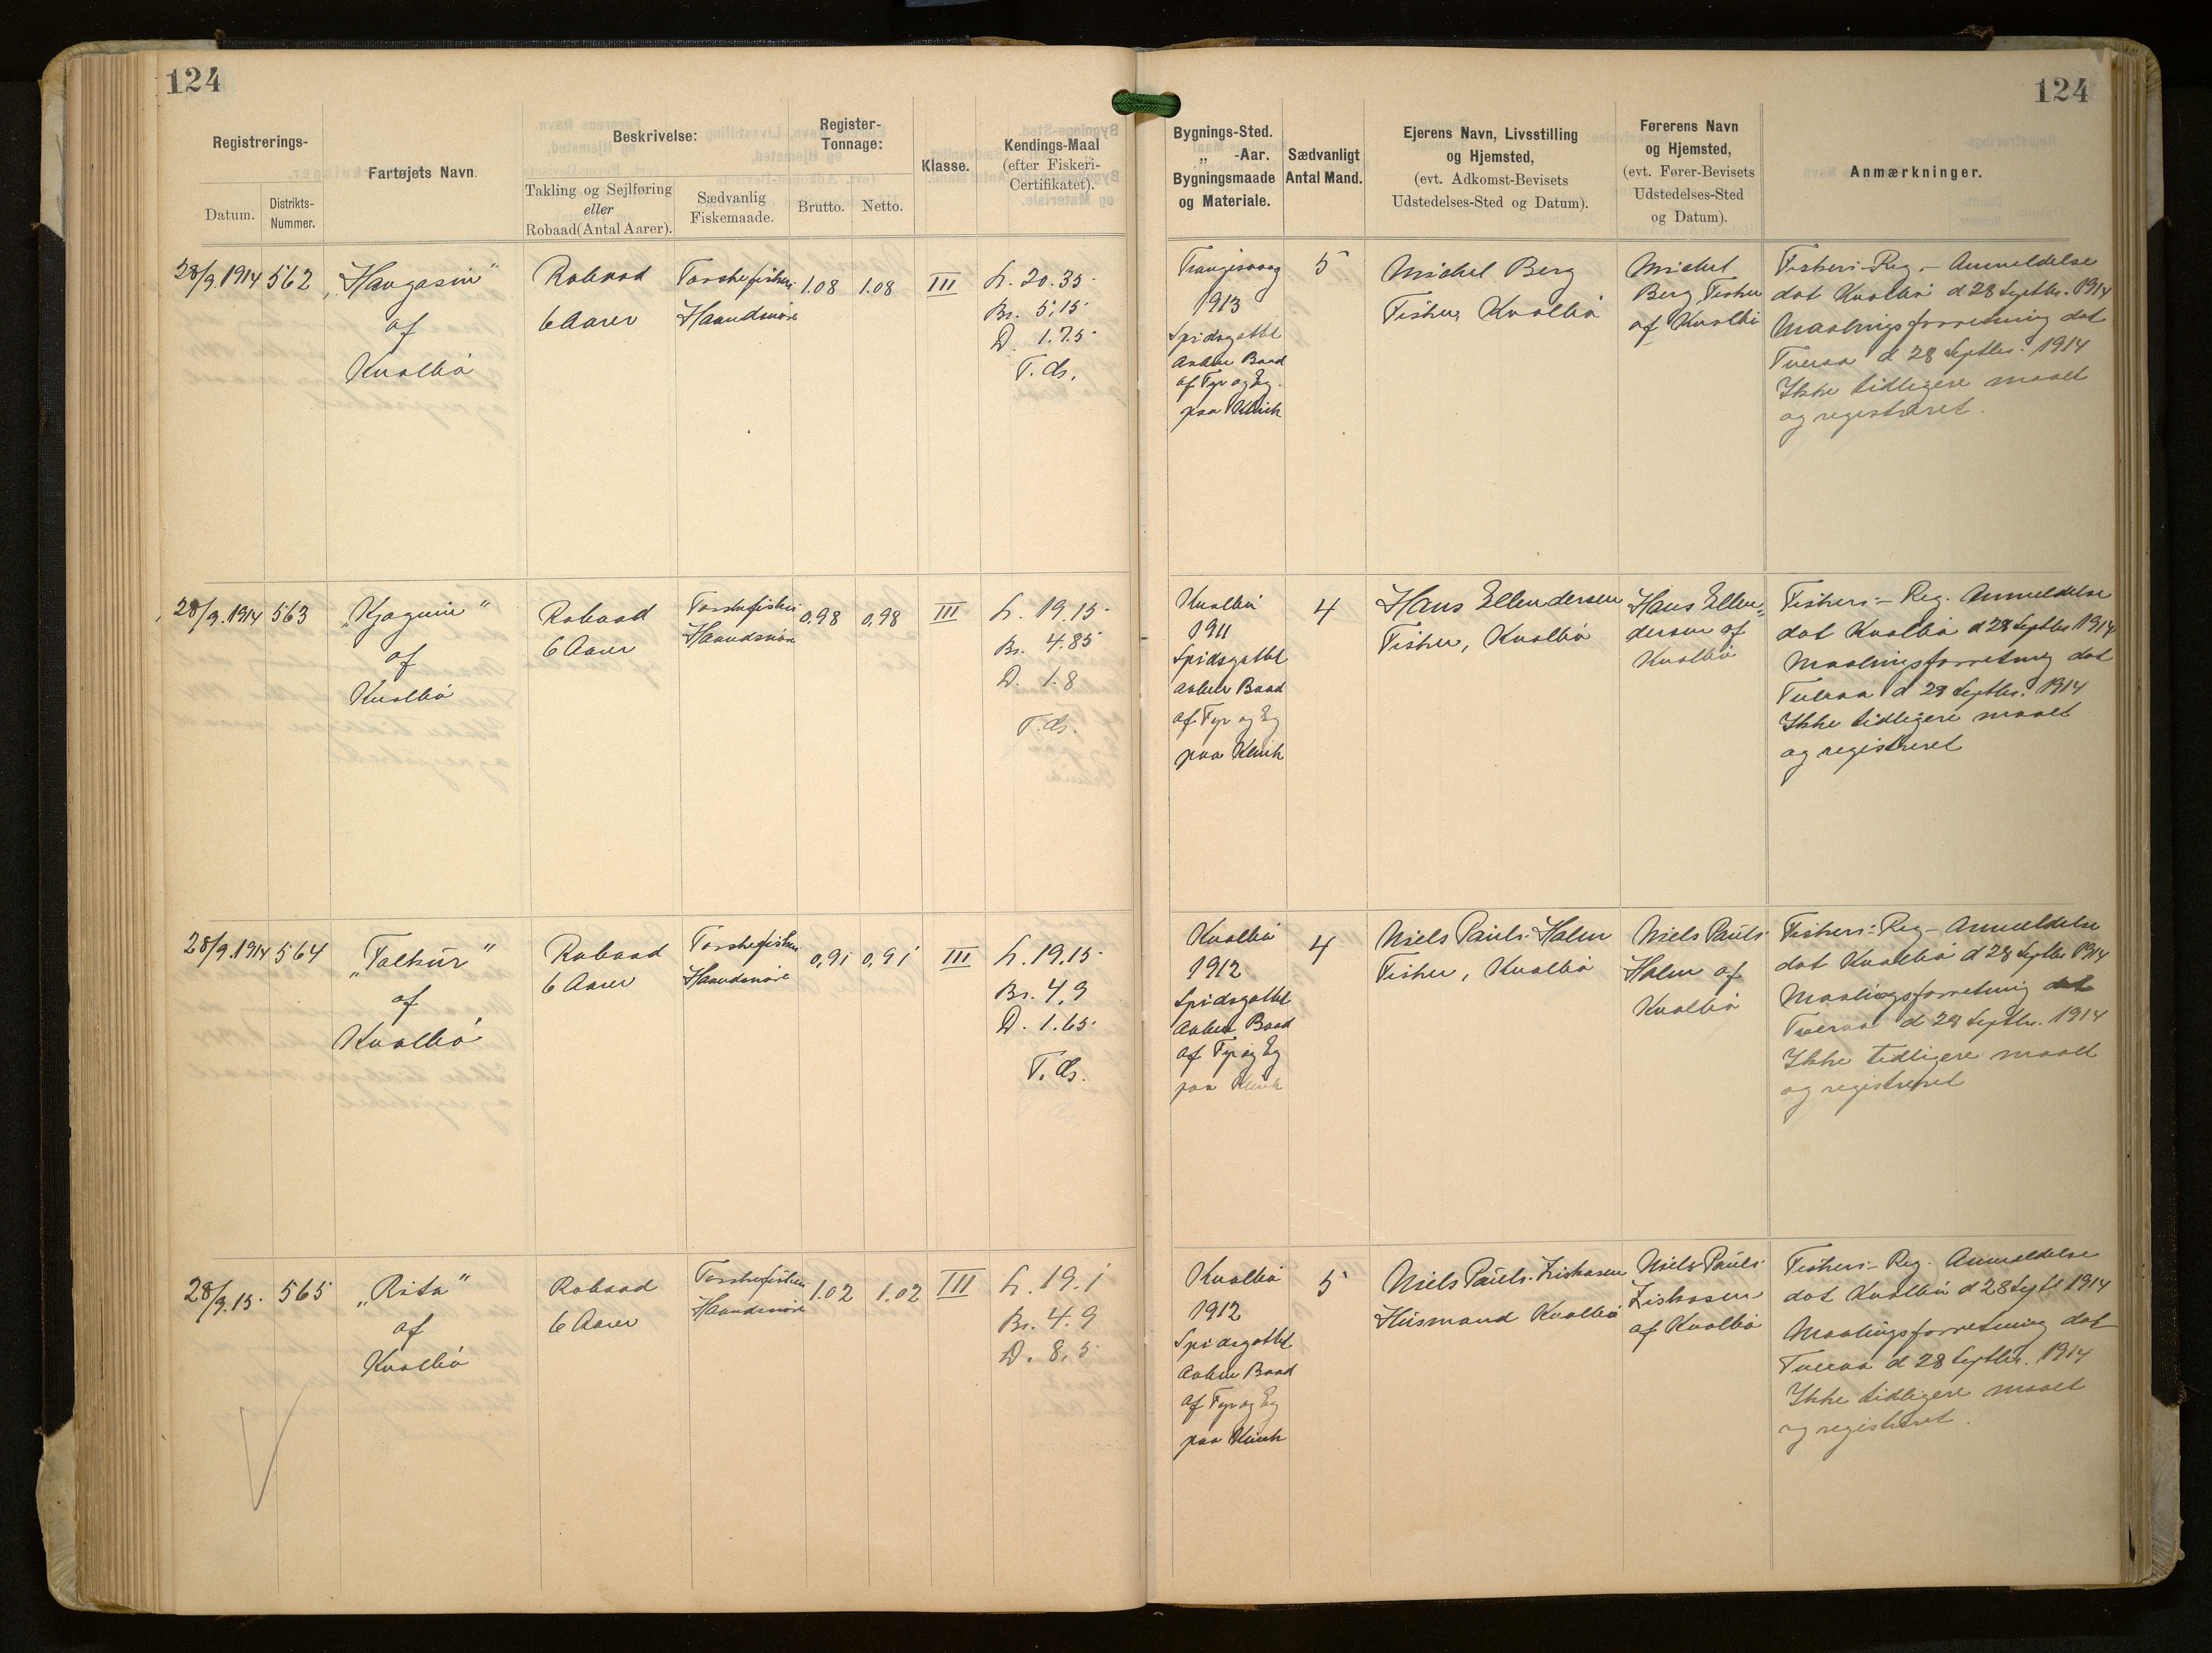 124
124
Registrerings-
Datum.
Distrikts-
Nummer.
Fartøjets Navn.
Beskrivelse:
Takling og Sejlføring
eller
Robaad (Antal Aarer).
Sædvanlig
Fiskemaade.
Register-
Tonnage:
Brutto.
Netto.
Klasse.
Kendings-Maal
(efter Fiskeri-
Certifikatet).
Bygnings-Sted.
„ -Aar.
Bygningsmaade
og Materiale.
Sædvanligt
Antal Mand.
Ejerens Navn, Livsstilling
og Hjemsted,
(evt. Adkomst-Bevisets
Udstedelses-Sted og Datum).
Førerens Navn
og Hjemsted,
(evt. Fører-Bevisets
Udstedelses-Sted
og Datum).
Anmærkninger.
28/9.1914
562
„Havgasin“
af
Kvalbø
Robaad
6 Aarer
Torskefiskeri
Haandsnøre
1.08
1.08
III
L. 20.35
Br. 5,15
D. 1.75
T. ds.
Trangisvaag
1913
Spidsgattet
aaben Baad
af Fyr og Eg
paa Klink
5
Michel Berg
Fisker, Kvalbø
Michel
Berg, Fisker
af Kvalbø
Fiskeri-Reg.- Anmeldelse
dat Kvalbø d 28 Septbr. 1914
Maalingsforretning dat
Tveraa d 28 Septbr. 1914
Ikke tidligere maalt
og registreret.
28/9.1914
563
„Kjaguin“
af
Kvalbø
Robaad
6 Aarer
Torskefiskeri
Haandsnøre
0,98
0,98
III
L. 19.15
Br. 4.85
D. 1.8
T. ds.
Kvalbø
1911
Spidsgattet
aaben Baad
af Fyr og Eg
paa Klink
4
Hans Ellendersen
Fisker, Kvalbø
Hans Ellen=
dersen af
Kvalbø
Fiskeri- Reg. Anmeldelse
dat Kvalbø d 28 Septbr 1914
Maalingsforretning dat
Tveraa d 28 Septbr. 1914
Ikke tidligere maalt
og registreret
28/9.1914
564
„Falkur“
af
Kvalbø
Robaad
6 Aarer
Torskefiskeri
Haandsnøre
0,91
0,91
III
L. 19.15
Br. 4,9
D. 1.65
T. ds.
Kvalbø
1912
Spidsgattet
Aaben Baad
af Fyr og Eg
paa Klink
4
Niels Pauli Holm
Fisker, Kvalbø
Niels Pauli
Holm af
Kvalbø
Fiskeri-Reg- Anmeldelse
dat Kvalbø d 28 Septbr 1914
Maalingsforretning dat
Tveraa d 28 Septbr. 1914
Ikke tidligere maalt
og registreret
28/9.15.
565
„Rita“
af
Kvalbø
Robaad
6 Aarer
Torskefiskeri
Haandsnøre
1.02
1.02
III
L. 19.1
Br. 4.9
D. 8,5
Kvalbø
1912
Spidsgattet
Aaben Baad
af Fyr og Eg
paa Klink
5
Niels Pauli
Husmand Kvalbø
Niels Pauli
af Kvalbø
Fiskeri- Reg. Anmeldelse
dat Kvalbø d 28 Septb 1914
Maalingsforretning dat
Tveraa d 28 Septbr. 1914
Ikke tidligere maalt
og registreret.